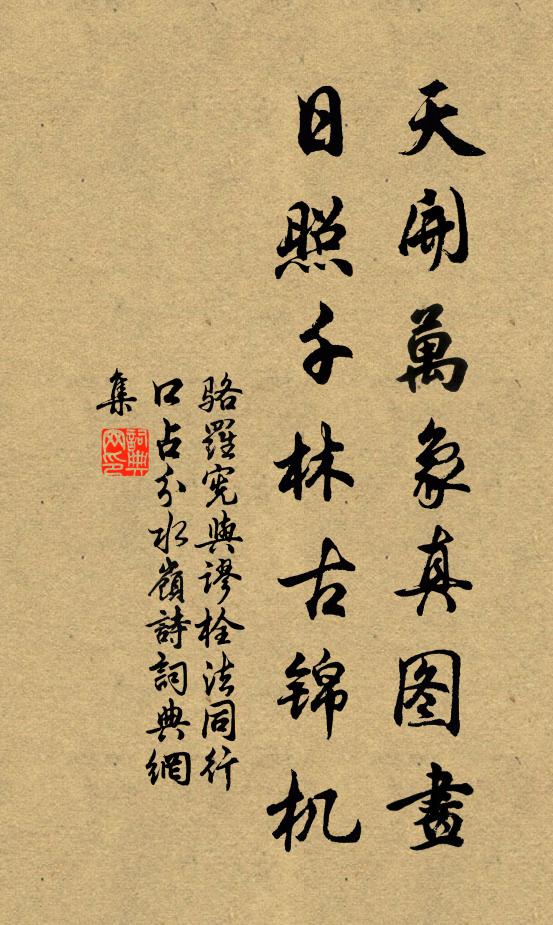 天開萬象真图畫
日照千林古锦机
骆羅宪與謬栓法同行
口占分水嶺詩詞典網
集
詞典網印